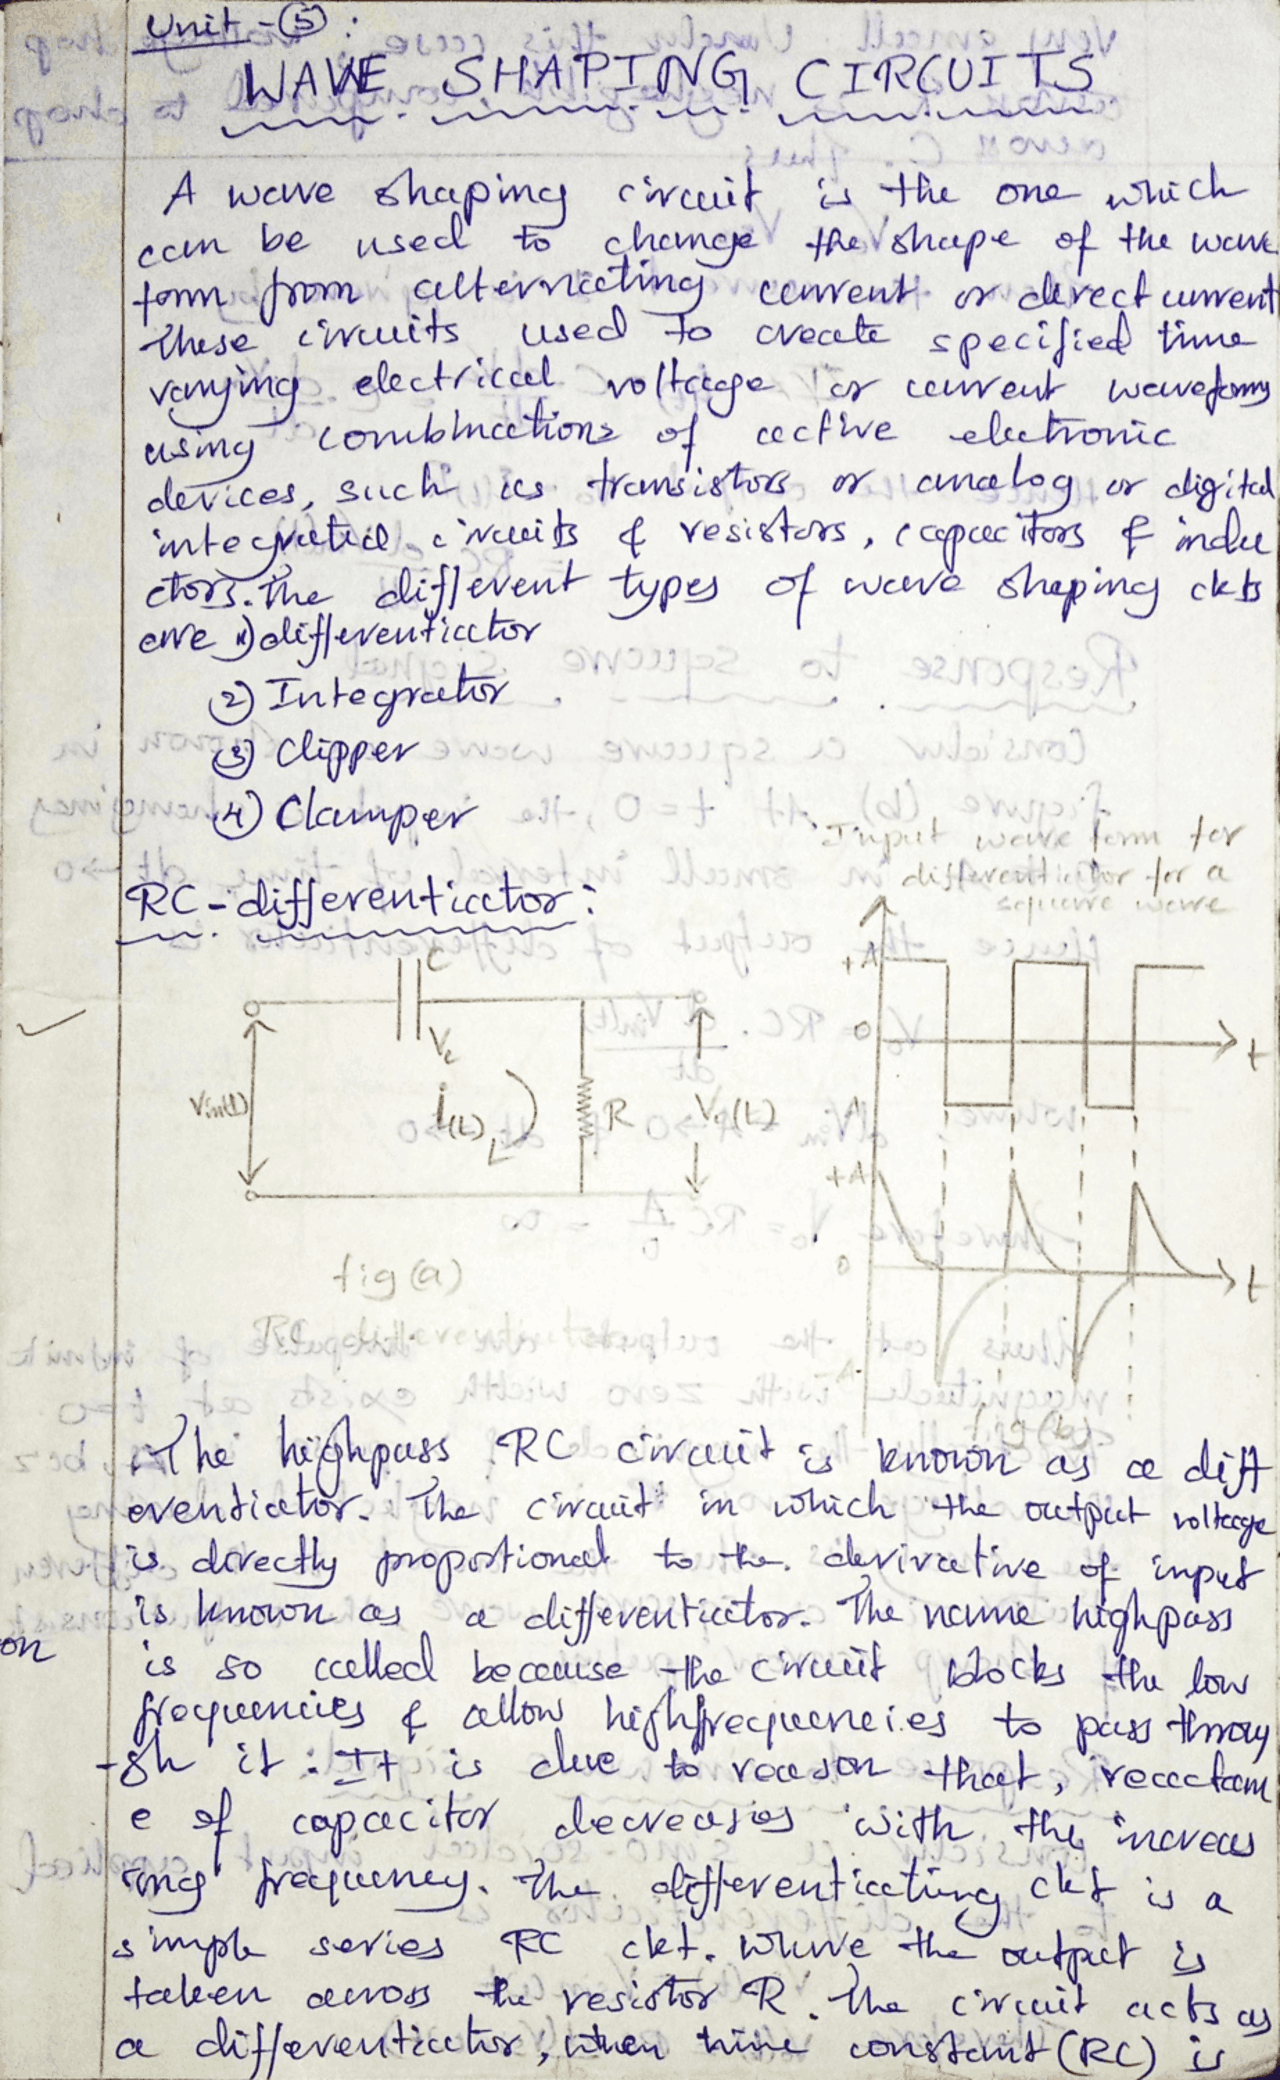 Unit - 5 :
WAVE SHAPING CIRCUITS
A wave shaping circuit is the one which
can be used to change the shape of the wave
form from alternating current or direct current
These circuits used to create specified time
varying electrical voltage or current waveforms
using combinations of active electronic
devices, such as transistors or analog or digital
integrated circuits & resistors, capacitors & indu
ctors. The different types of wave shaping ckts
are 1) differentiator
2) Integrator
3) Clipper
4) Clamper
Input wave form for
differentiator for a
square wave
RC - differentiator :
C
Vc
Vin(t)
i(t)
R
Vo(t)
fig (a)
RC differentiator
+A
0
t
A
+A
0
t
A
fig (b)
The highpass RC circuit is known as a diff
erentiator. The circuit in which the output voltage
is directly proportional to the derivative of input
is known as a differentiator. The name highpass
is so called because the circuit blocks the low
frequencies & allow highfrequencies to pass throu
-gh it : It is due to reason that, reactanc
e of capacitor decreases with the increas
ing frequency. The differentiating ckt is a
simple series RC ckt. where the output is
taken across the resistor R. The circuit acts as
a differentiator, when time constant (RC) is
on